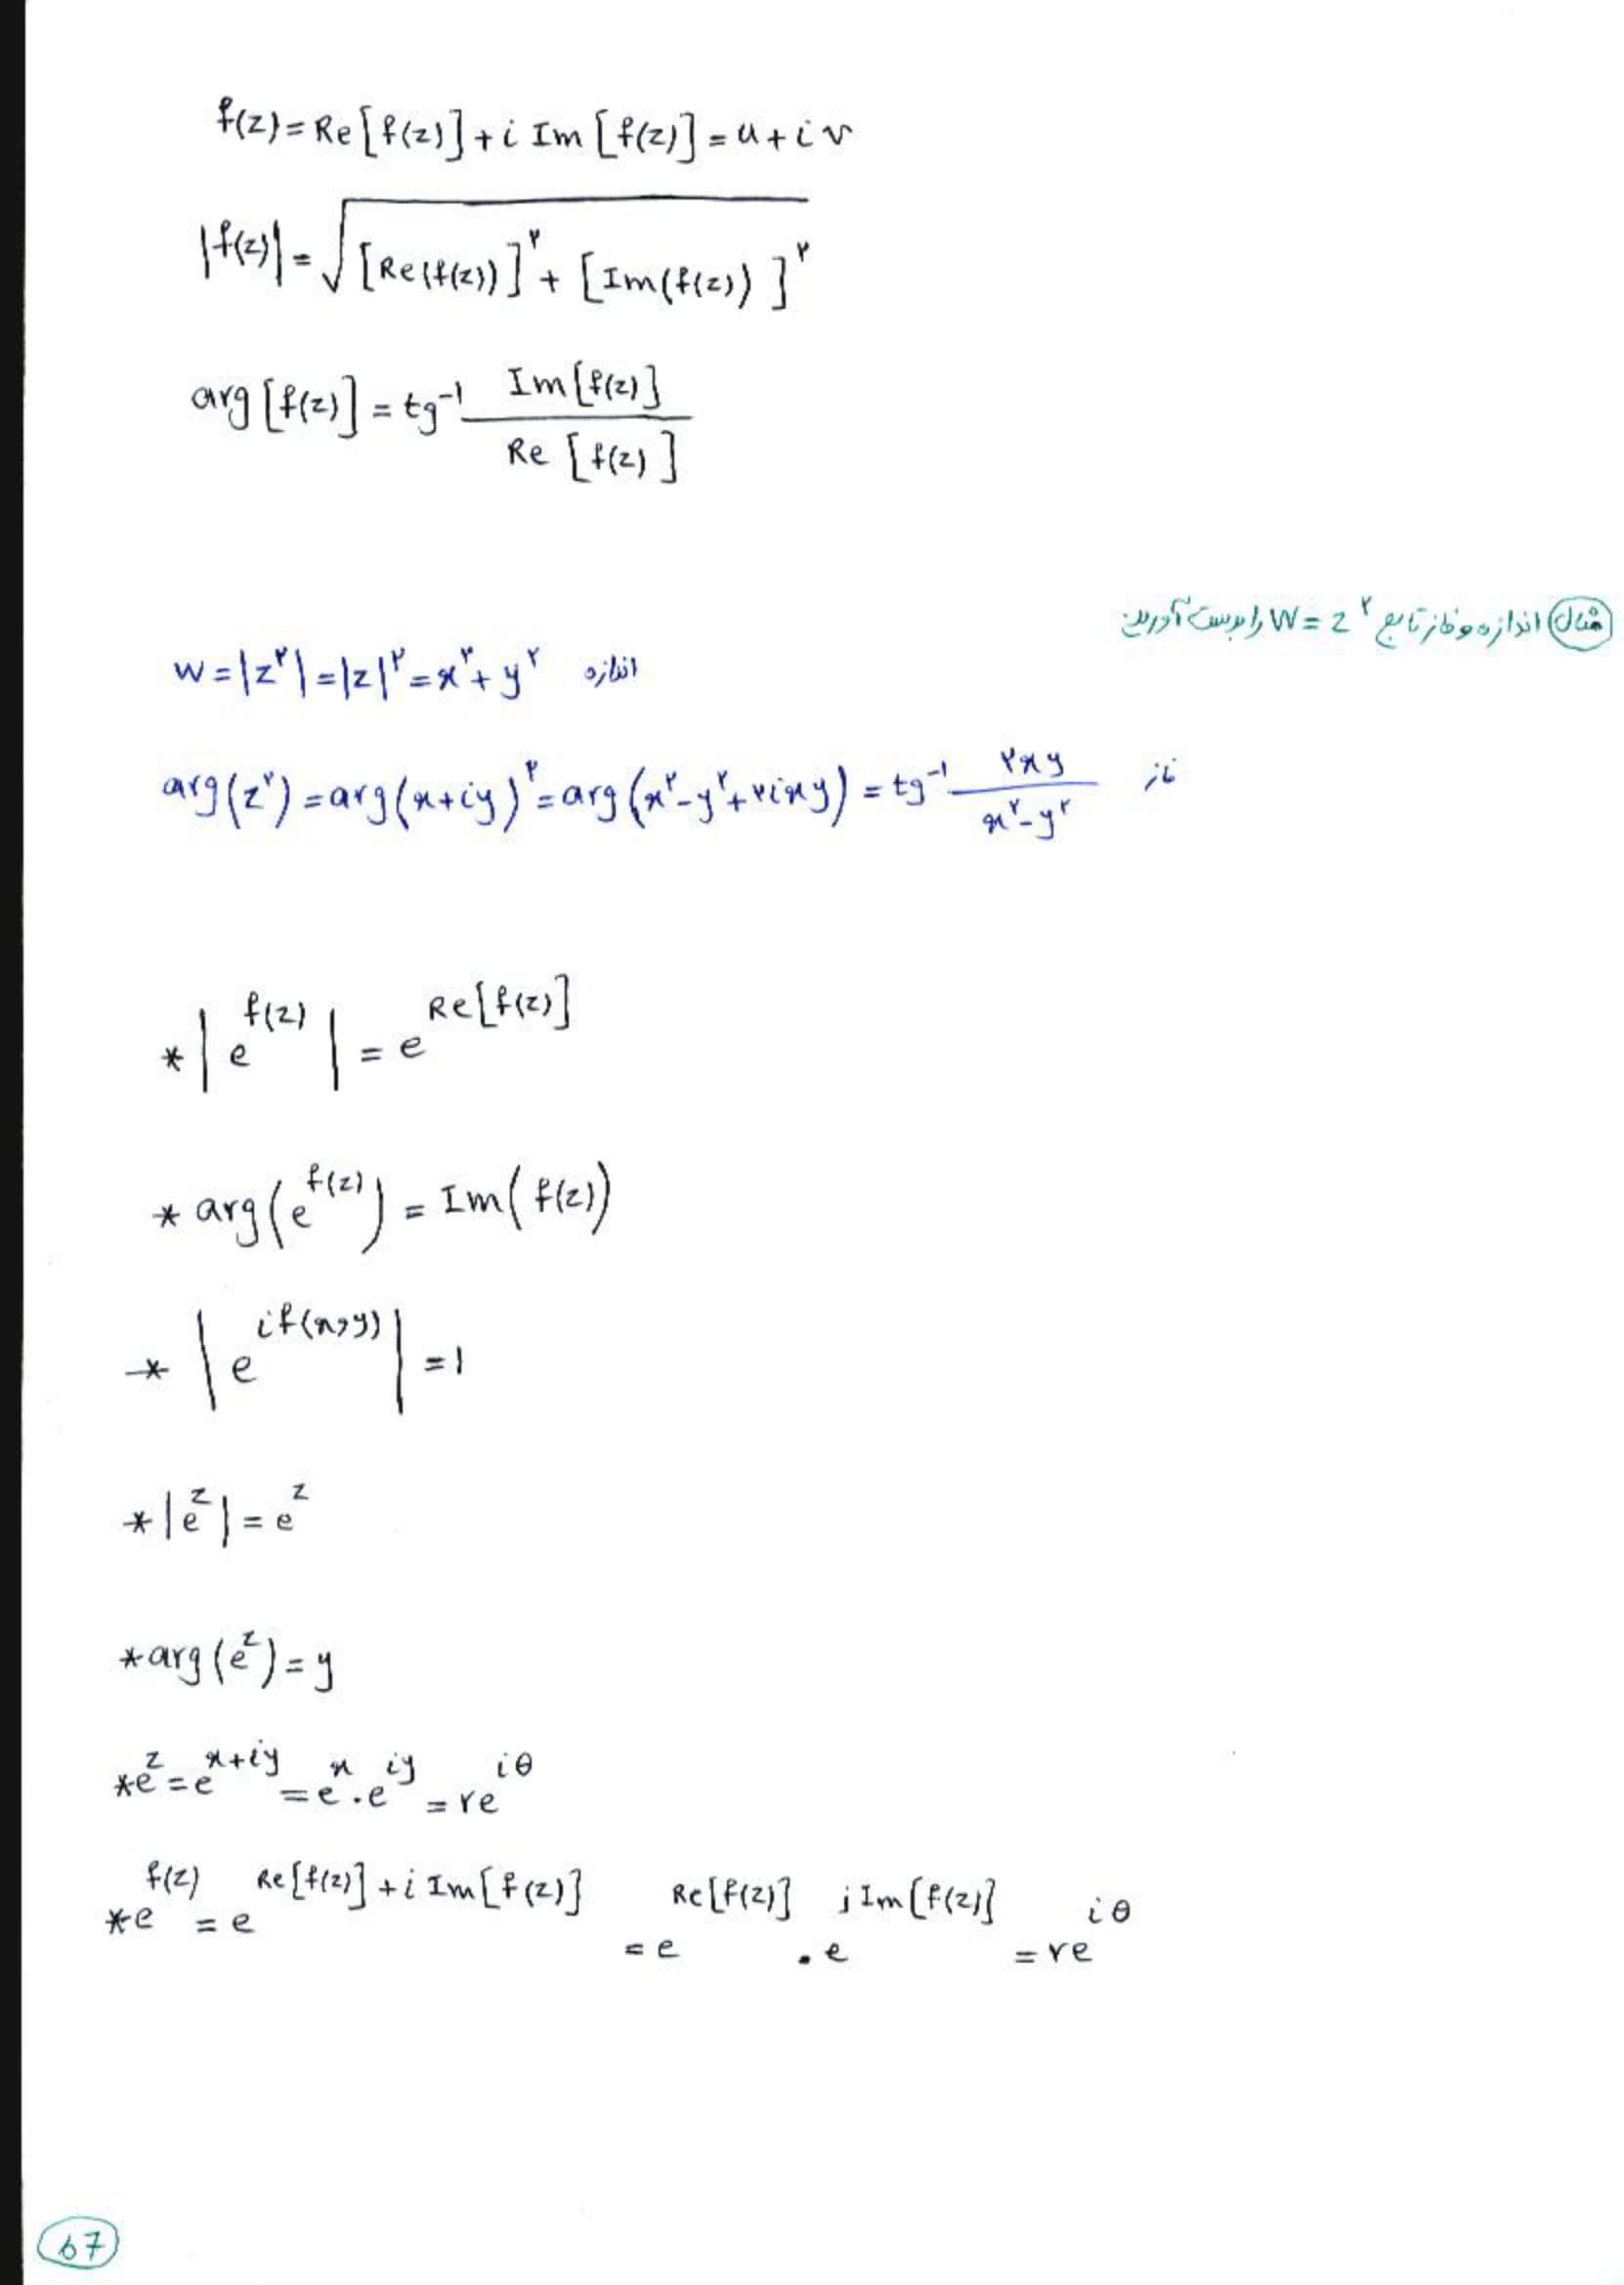 f(z)=Re[f(z)]+i Im[f(z)]=u+iv
|f(z)|=√([Re(f(z))]^۲+[Im(f(z))]^۲)
arg[f(z)]=tg^-1 Im[f(z)]/Re[f(z)]
مثال اندازه و فاز تابع W=z^۲ را بدست آورید
w=|z^۲|=|z|^۲=x^۲+y^۲ اندازه
arg(z^۲)=arg(x+iy)^۲=arg(x^۲-y^۲+۲ixy)=tg^-1 ۲xy/(x^۲-y^۲) فاز
*|e^f(z)|=e^Re[f(z)]
*arg(e^f(z))=Im(f(z))
*|e^if(x,y)|=1
*|e^z|=e^z
*arg(e^z)=y
*e^z=e^x+iy=e^x.e^iy=re^iθ
*e^f(z)=e^Re[f(z)]+i Im[f(z)]=e^Re[f(z)].e^jIm[f(z)]=re^iθ
67